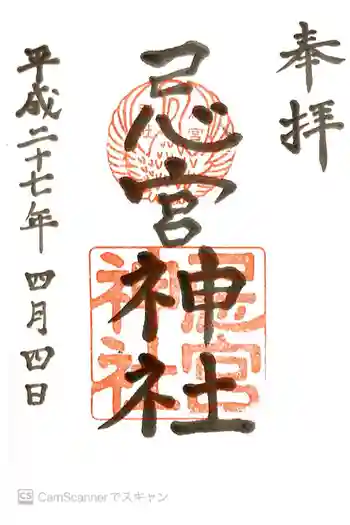 奉拝
忌宮神社
忌宮
神社
平成二十七年四月四日
CS CamScannerでスキャン